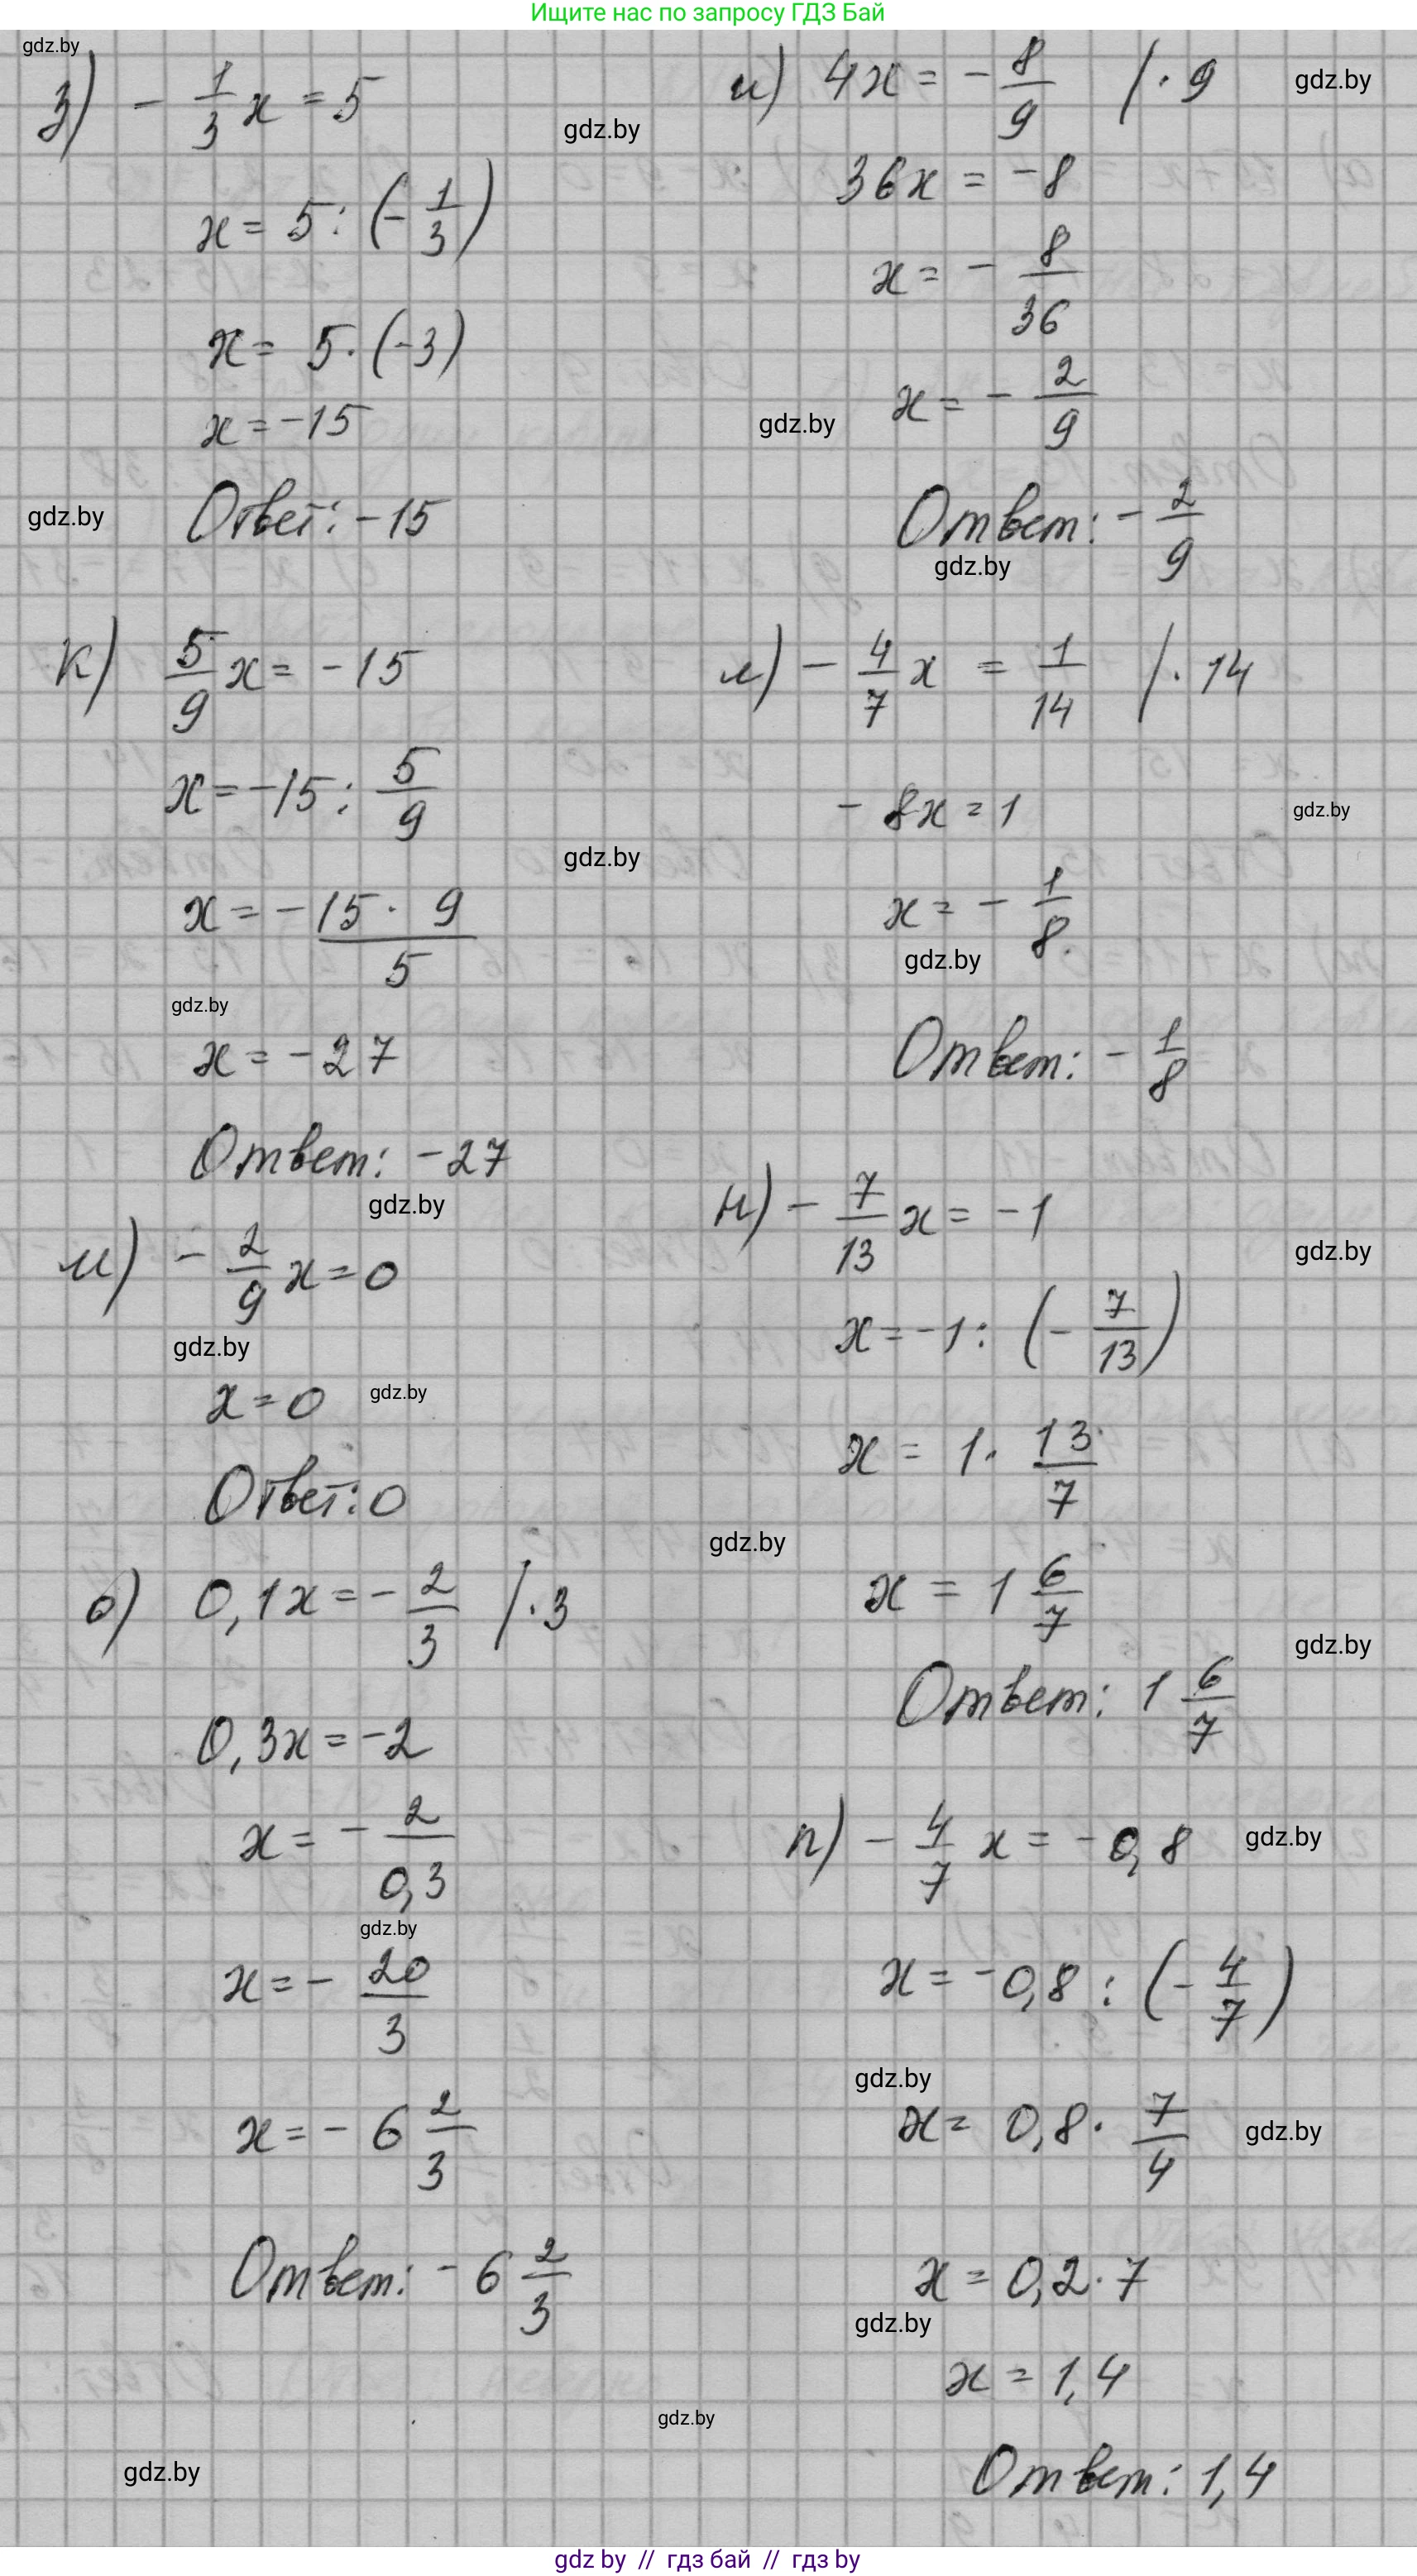 Ищите нас по запросу ГДЗ Бай
gdz.by
з) - 1/3 x = 5
gdz.by
x = 5 : (- 1/3)
x = 5 · (-3)
x = -15
gdz.by
Ответ: -15
и) 4x = - 8/9 / · 9
gdz.by
36x = -8
x = - 8/36
x = - 2/9
gdz.by
Ответ: - 2/9
gdz.by
к) 5/9 x = -15
x = -15 : 5/9
gdz.by
x = - 15 · 9/5
gdz.by
x = -27
Ответ: -27
gdz.by
л) - 4/7 x = 1/14 / · 14
- 8x = 1
gdz.by
x = - 1/8
gdz.by
Ответ: - 1/8
м) - 2/9 x = 0
gdz.by
x = 0
gdz.by
Ответ: 0
н) - 7/13 x = -1
gdz.by
x = -1 : (- 7/13)
x = 1 · 13/7
gdz.by
x = 1 6/7
gdz.by
Ответ: 1 6/7
о) 0,1x = - 2/3 / · 3
0,3x = -2
x = - 2/0,3
gdz.by
x = - 20/3
x = - 6 2/3
Ответ: - 6 2/3
п) - 4/7 x = -0,8
gdz.by
x = -0,8 : (- 4/7)
gdz.by
x = 0,8 · 7/4
gdz.by
x = 0,2 · 7
gdz.by
x = 1,4
gdz.by
Ответ: 1,4
gdz.by
gdz by // гдз бай // гдз by